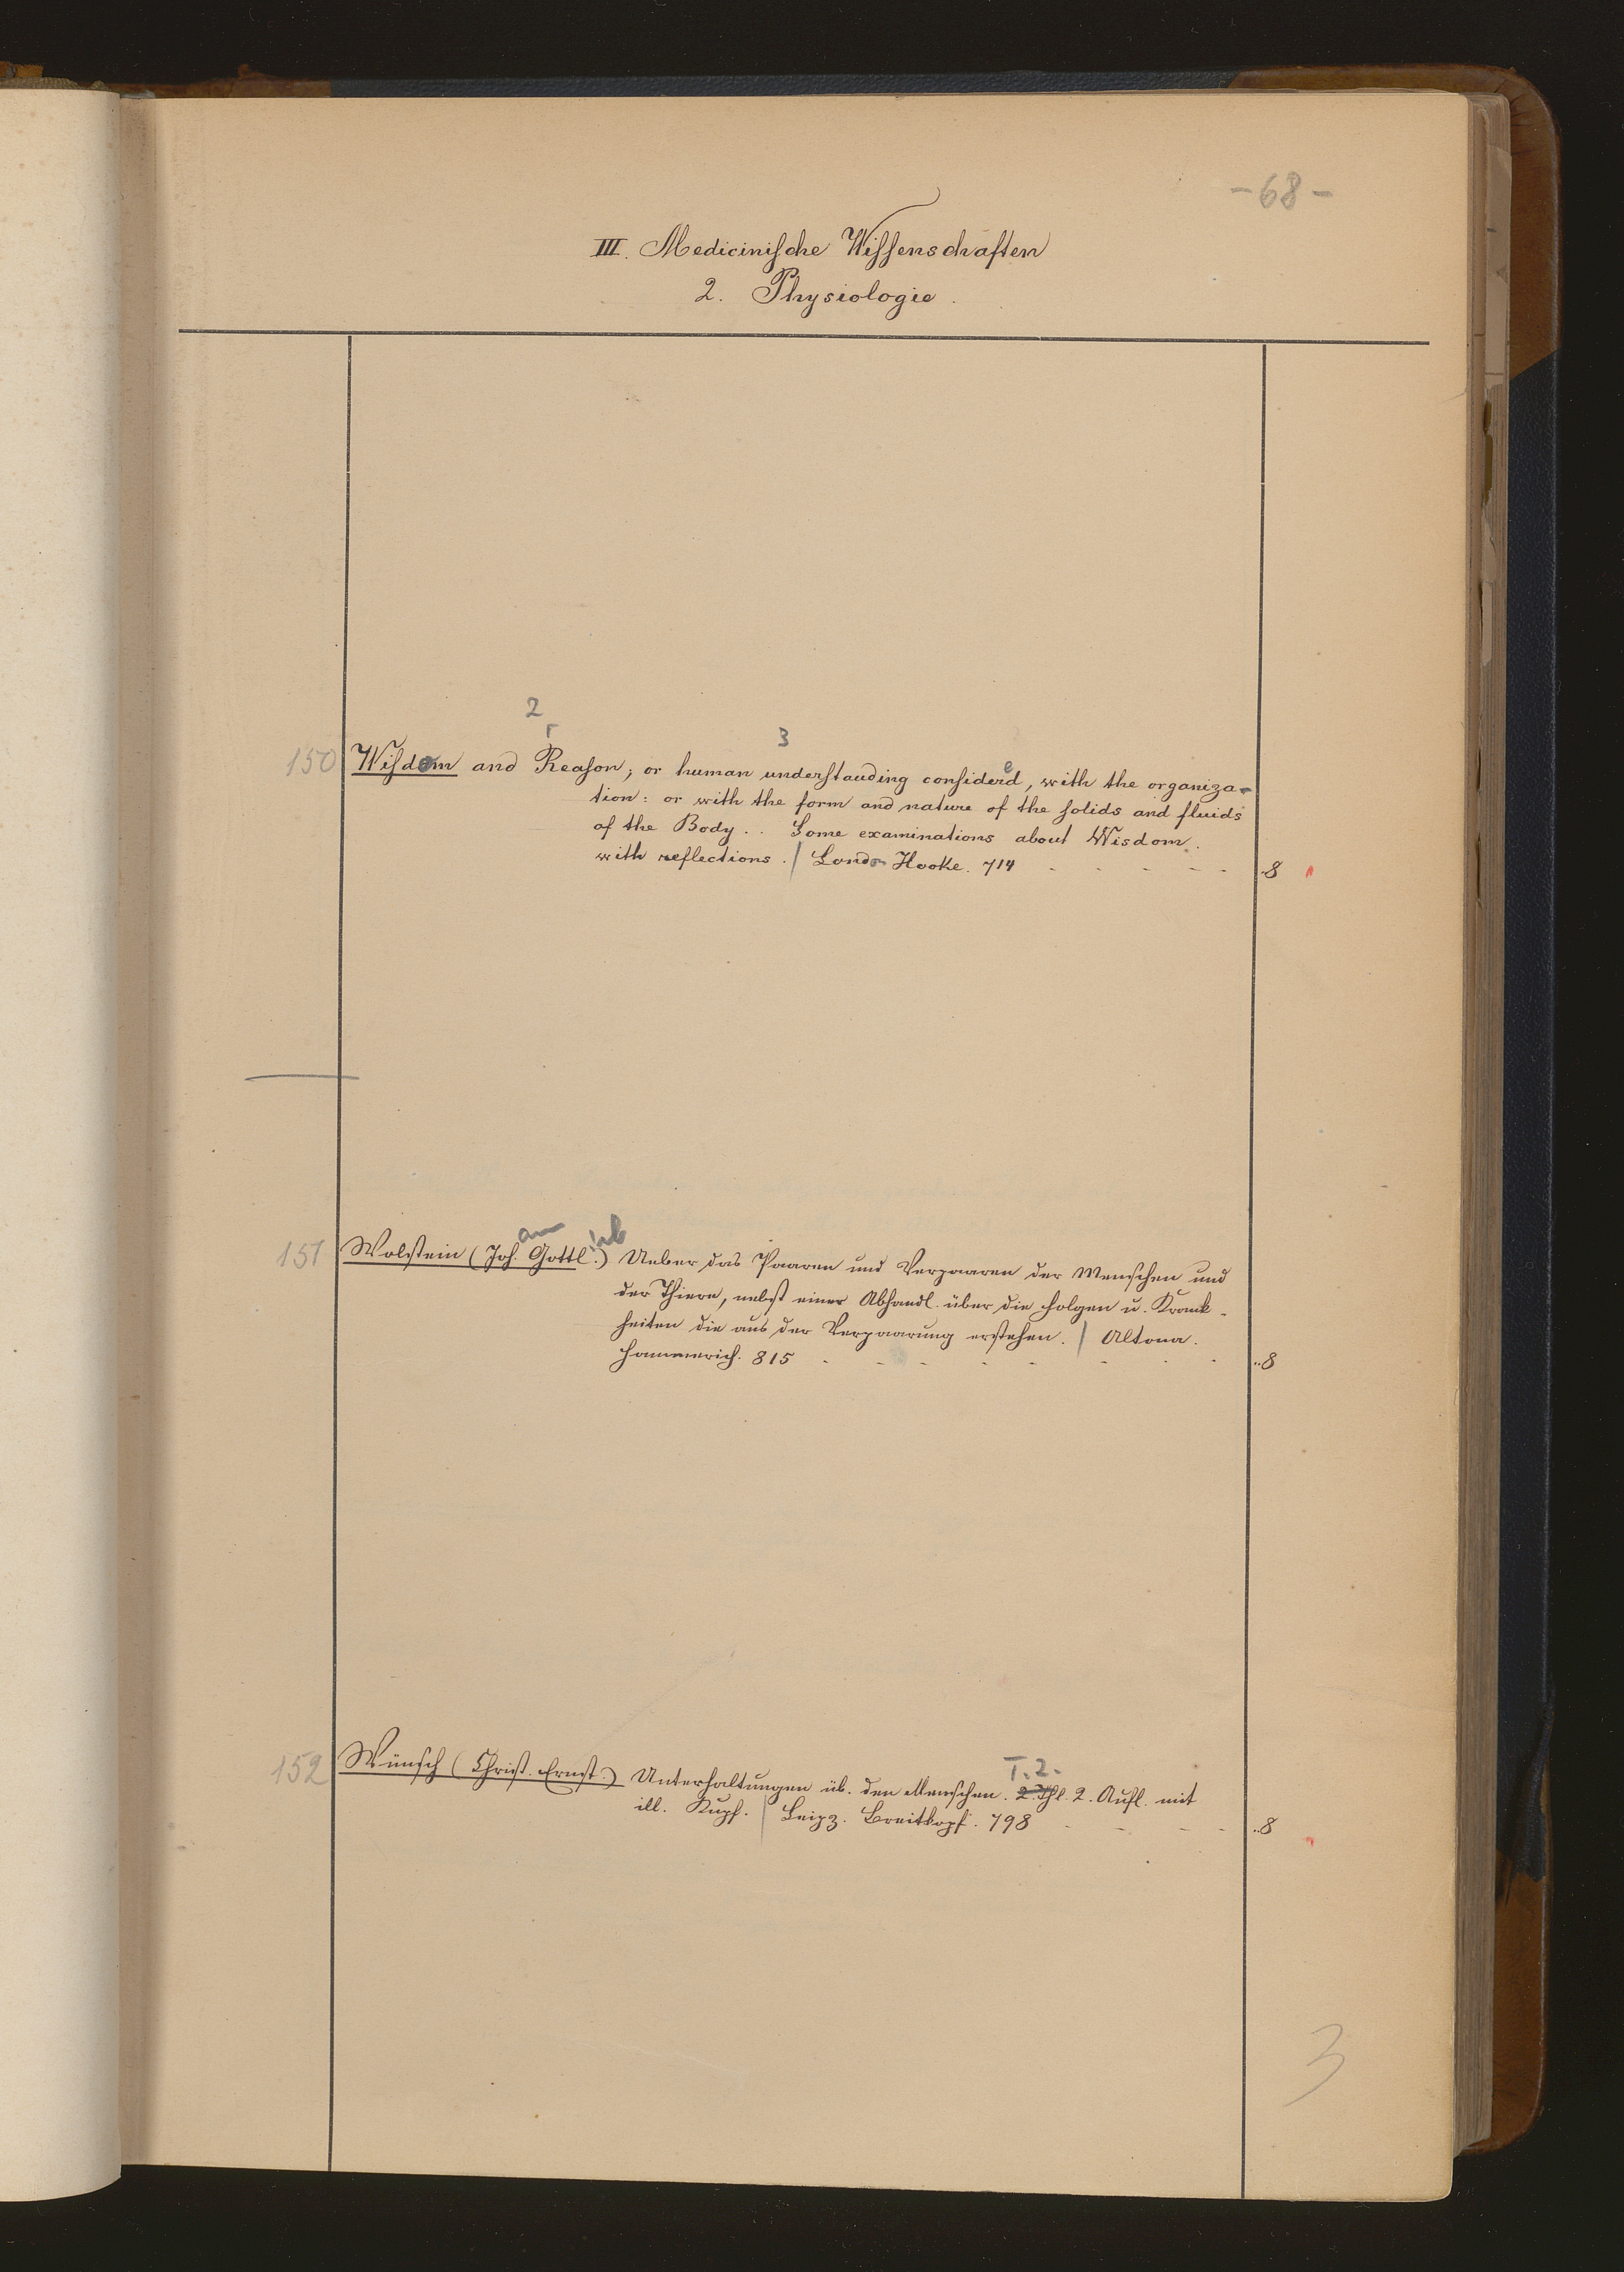 -68-
III. Medicinische Wissenschaften
2. Physiologie.
2
r
3
150 Wisdom and Reason; or human understanding considerd, with the organiza-
e
tion: or with the form and nature of the solids and fluids
of the Body.. Some examinations about Wisdom.
with reflections. / Londo Hooke. 714 - - - - - 8
an lieb
151 Wolstein (Joh. Gottl.) Ueber das Paaren und Verpaaren der Menschen und
der Thiere, nebst einer Abhandl. über die Folgen u. Krank-
heiten die aus der Verpaarung erstehen. / Altona.
Hammerich. 815 - - - - - - - - ..8
T. 2.
152 Wünsch (Christ. Ernst.) Unterhaltungen üb. den Menschen. 2. Thl. 2. Aufl. mit
ill. Kupf. | Leipz. Breitkopf. 798 - - - - ..8
3